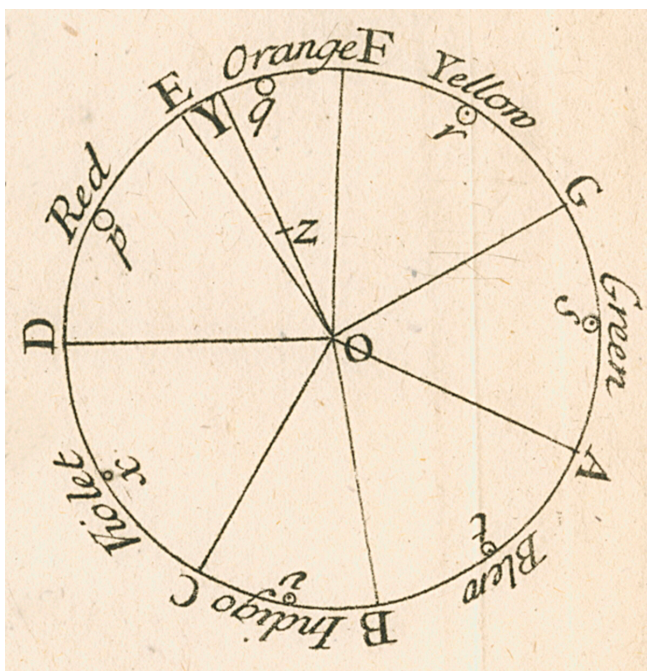 D
Red
p
E
Y
Orange
q
F
Yellow
r
G
Green
s
A
Blew
t
B
Indigo
v
C
Violet
x
Z
O